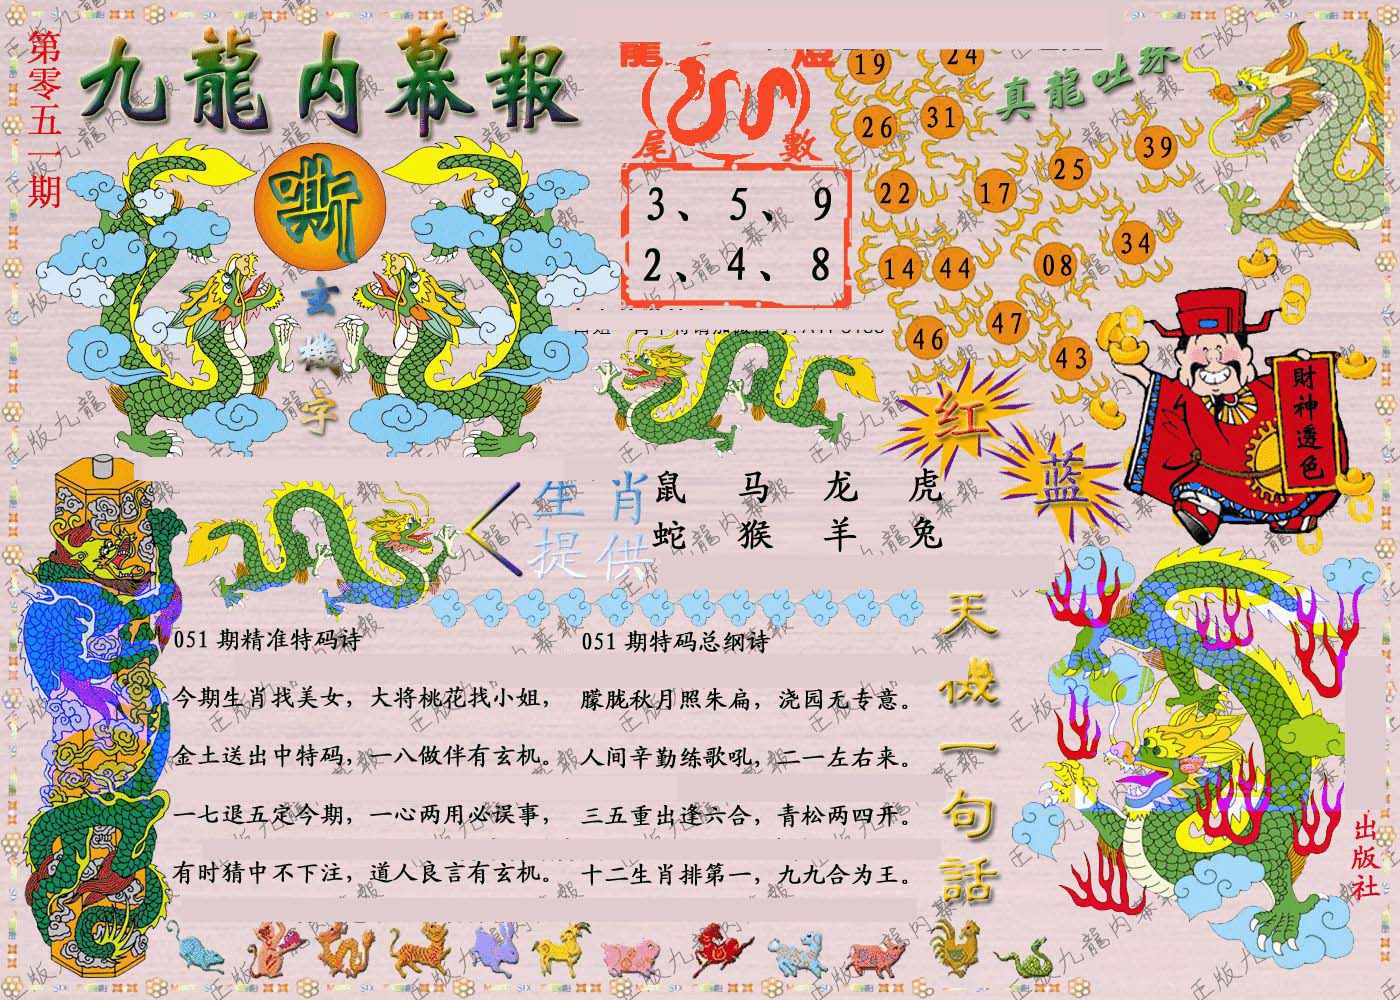 第零五一期
九龍内幕報
嘶
玄機字
龍
尾數
3、5、9
2、4、8
真龍吐珠
19 24
26 31
22 17 25 39
14 44 08 34
46 47 43
红
蓝
財神透色
生肖
提供
鼠 马 龙 虎
蛇 猴 羊 兔
051期精准特码诗
今期生肖找美女，大将桃花找小姐，
金土送出中特码，一八做伴有玄机。
一七退五定今期，一心两用必误事，
有时猜中不下注，道人良言有玄机。
051期特码总纲诗
朦胧秋月照朱扁，浇园无专意。
人间辛勤练歌吼，二一左右来。
三五重出逢六合，青松两四开。
十二生肖排第一，九九合为王。
天機一句話
出版社
正版九龍内幕報